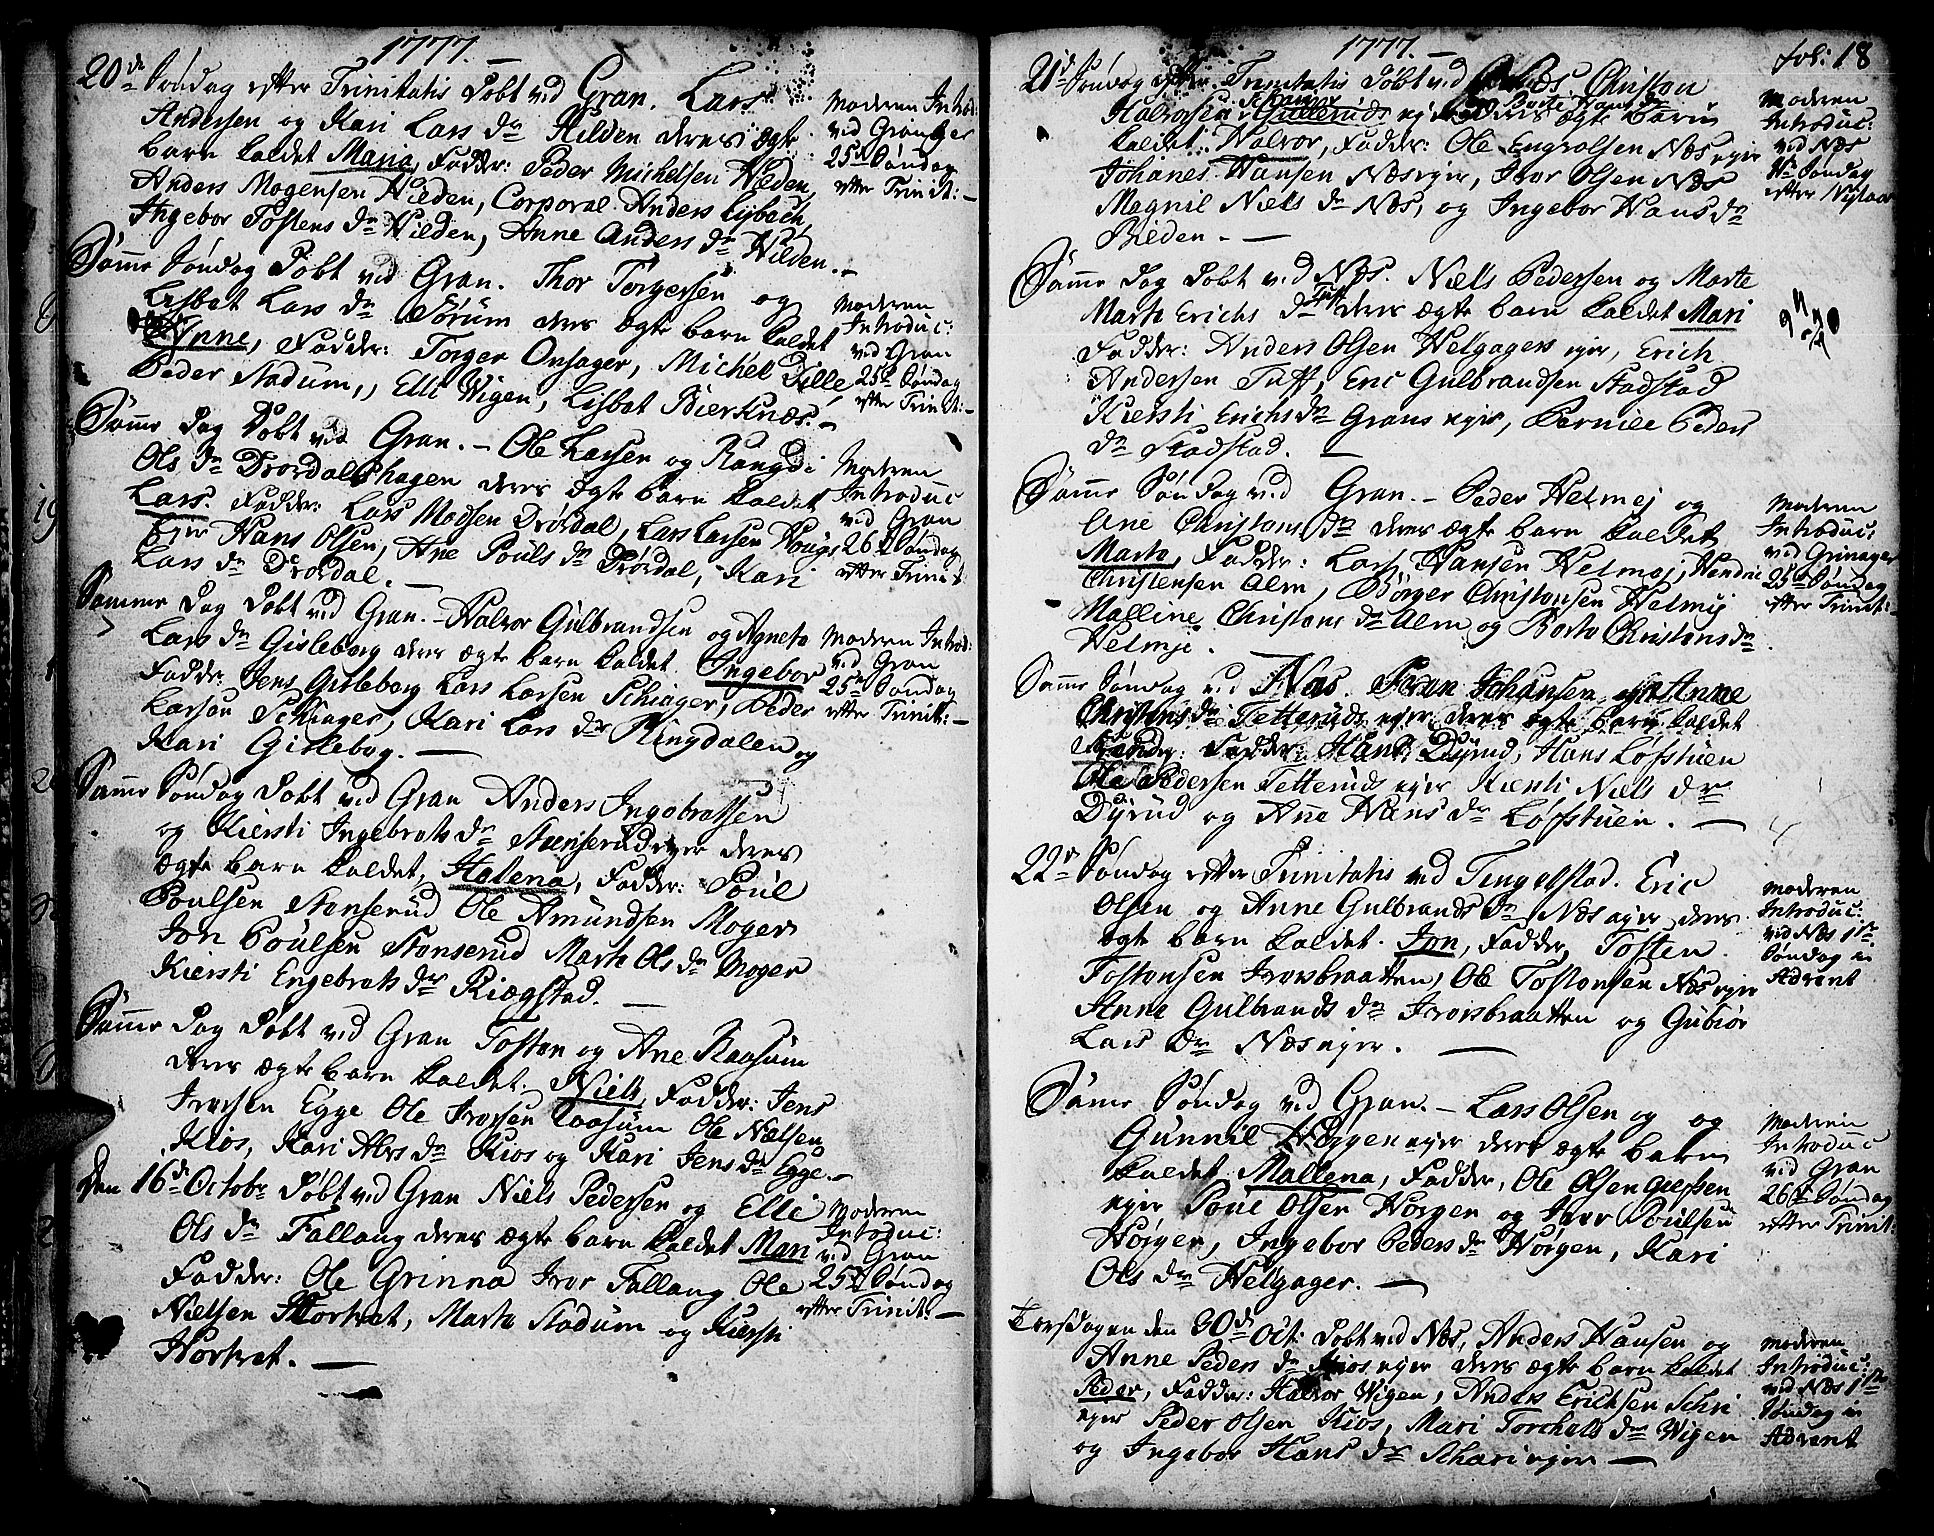 1777. —
20de Søndag efter Trinitatis Døbt ved Gran. Lars
Andersen og Kari Lars dr Hilden deres ægte
barn kaldet Maria, Fadder: Peder Michelsen Hilden,
Anders Mogensen Hilden, Corporal Anders Lybach,
Ingebor Tostens dr Hilden, Anne Anders dr Hilden. —
Moderen Introd:
ved Granager
25de Søndag
efter Trinit: —
Samme Søndag Døbt ved Gran. Thor Torgersen og
Lisbet Lars dr Sørum deres ægte barn kaldet
Anne, Fadder: Torger Onsager, Michel Dille
Peder Stadum, Elli Wigen, Lisbet Bierknæs. —
Moderen
Introduc:
ved Gran
25de Søndag
efter Trinit: —
Samme Dag Døbt ved Gran. — Ole Larsen og Rangdi
Ols dr Drøvdalshagen deres ægte barn kaldet
Lars. Fadder: Lars Madsen Drøvdal, Lars Larsen Hougs
Eier Hans Olsen, Ane Pouls dr Drøvdal, Kari
Lars dr Drøvdal. —
Moderen
Introduc
ved Gran
26de Søndag
efter Trinit
Samme Dag Døbt ved Gran. — Halvor Gulbrandsen og Agneta
Lars dr Gisleborg deres ægte barn kaldet Ingebor
Fadder: Jens Gisleborg Lars Larsen Schiager, Peder
Larsen Schiager, Kari Lars dr Ringdalen og
Kari Gislebog. —
Moderen Introd:
ved Gran
25de Søndag
efter Trinit: —
Samme Søndag Døbt ved Gran Anders Ingebretsen
og Kiersti Ingebrets dr Stenserud eyer deres
ægte barn kaldet, Halena, Fadder: Poul
Poulsen Stenserud Ole Amundsen Moger
Jon Poulsen Stenserud Marte Ols dr Moger
Kiersti Engebrets dr Riægstad. —
Samme Dag Døbt ved Gran Tosten og Ane Raasum
deres ægte barn kaldet. Niels, Fadder: Jens
Iversen Egge Ole Iversen Raasum Ole Nielsen
Kios, Kari Alvs dr Kios og Kari Jens dr Egge. —
Den 16de Octobr Døbt ved Gran Niels Pedersen og Elli
Ols dr Fallang deres ægte barn kaldet Mari
Fadder: Ole Grinna Iver Fallang Ole
Nielsen Hortvet, Marte Stadum og Kiersti
Hortvet. —
Moderen
Introduc:
ved Gran
25de Søndag
efter Trinit: —
1777. —
fol: 18
21de Søndag efter Trinitatis Døbt ved Næs Christen
Halvorsen Gulleruds eyer deres ægte barn
kaldet: Halvor, Fadder: Ole Engvolsen Næs eyer
Johanes Hansen Næs eyer, Iver Olsen Næs
Magnil Niels dr Næs, og Ingebor Hans dr
Bilden. —
Moderen
Introduc:
ved Næs
Søndag
efter Nytaar
Samme Dag Døbt ved Næs. Niels Pedersen og Marte
Marte Erichs dr Tuff deres ægte barn kaldet Mari
Fadder: Anders Olsen Helgagers eyer, Erich
Andersen Tuff, Eric Gulbrandsen Stadstad
Kiersti Erichs dr Grans eyer, Pernile Peders
dr Stadstad. —
Samme Søndag ved Gran. — Peder Helmej og
Ane Christens dr deres ægte barn kaldet
Marte, Fadder: Lars Hansen Helmej, Hendric
Christensen Alm, Børger Christensen Helmej
Malline Christens dr Alm og Berte Christens dr
Helmje.
Moderen
Introduc:
ved Grinager
25de Søndag
efter Trinit: —
Samme Søndag ved Næs. Johansen og Anne
Christens dr Tetteruds eyer deres ægte barn kaldet
Fadder: Hans Dyrud, Hans Løfstuen
Ole Pedersen Tetteruds eyer Kiersti Niels dr
Dyrud og Ane Hans dr Løfstuen. —
22de Søndag efter Trinitatis ved Tingelstad. Eric
Olsen og Anne Gulbrands dr Næs eyer deres
ægte barn kaldet. Jon, Fadder, Tosten
Tostensen Iversbraatten, Ole Tostensen Næs eyer
Anne Gulbrands dr Iversbraatten og Gubiør
Lars dr Næs eyer. —
Moderen
Introduc:
ved Næs 1ste
Søndag in
Advent
Samme Søndag ved Gran. — Lars Olsen og og
Gunnil Hørgen eyer deres ægte barn
kaldet Mallena, Fadder, Ole Olsen
eyer Poul Olsen Hørgen og Iver Poulsen
Hørgen, Ingebor Peders dr Hørgen, Kari
Ols dr Helgager. —
Moderen
Introduc
ved Gran
26de Søndag
efter Trinit:
Torsdagen den 30de Oct: Døbt ved Næs, Anders Hansen og
Anne Peders dr Kios eyer deres ægte barn kaldet
Peder, Fadder: Halvor Wigen, Anders Erichsen Schri
eyer Peder Olsen Kios, Mari Torchels dr Wigen
og Ingebor Hans dr Schari eyer —
Moderen
Introduc:
ved Næs 1ste
Søndag in
Advent